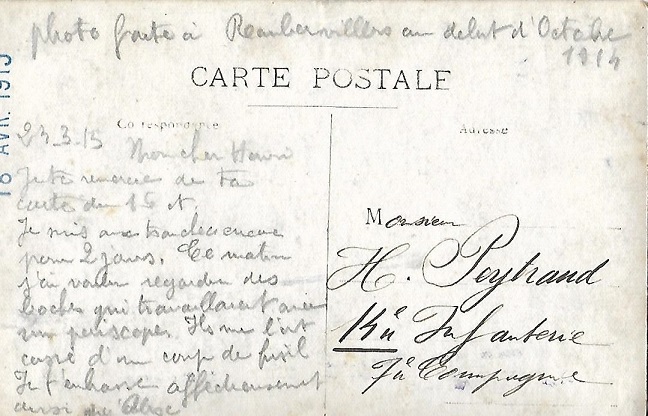 photo faite à Rambervillers au debut d'Octobre
1914
CARTE POSTALE
Correspondance
Adresse
18 AVR. 1915
23.3.15
Mon cher Henri
Je te remercie de ta
carte du 16 ct.
Je suis aux tranchees encore
pour 2 jours. Ce matin
j'ai voulu regarder des
boches qui travaillaient avec
un periscope. Ils me l'ont
cassé d'un coup de fusil
Je t'embrasse affectueusement
ainsi
Monsieur
H. Peytraud
Infanterie
7e Compagnie